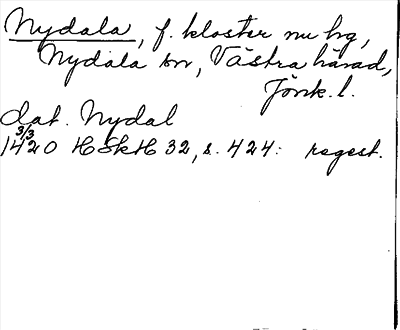 Nydala, f. kloster nu hg,
Nydala sn, Västra härad,
Jönk. l.
dat. Nydal
3/3
1420 HSkH 32, s. 424: regest.